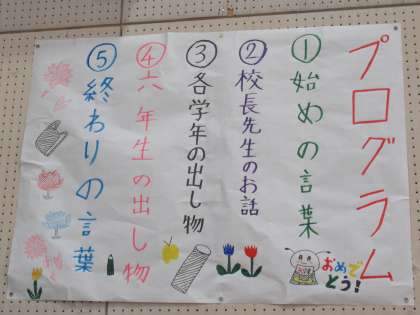 プログラム
①始めの言葉
②校長先生のお話
③各学年の出し物
④六年生の出し物
⑤終わりの言葉
おめで
とう！